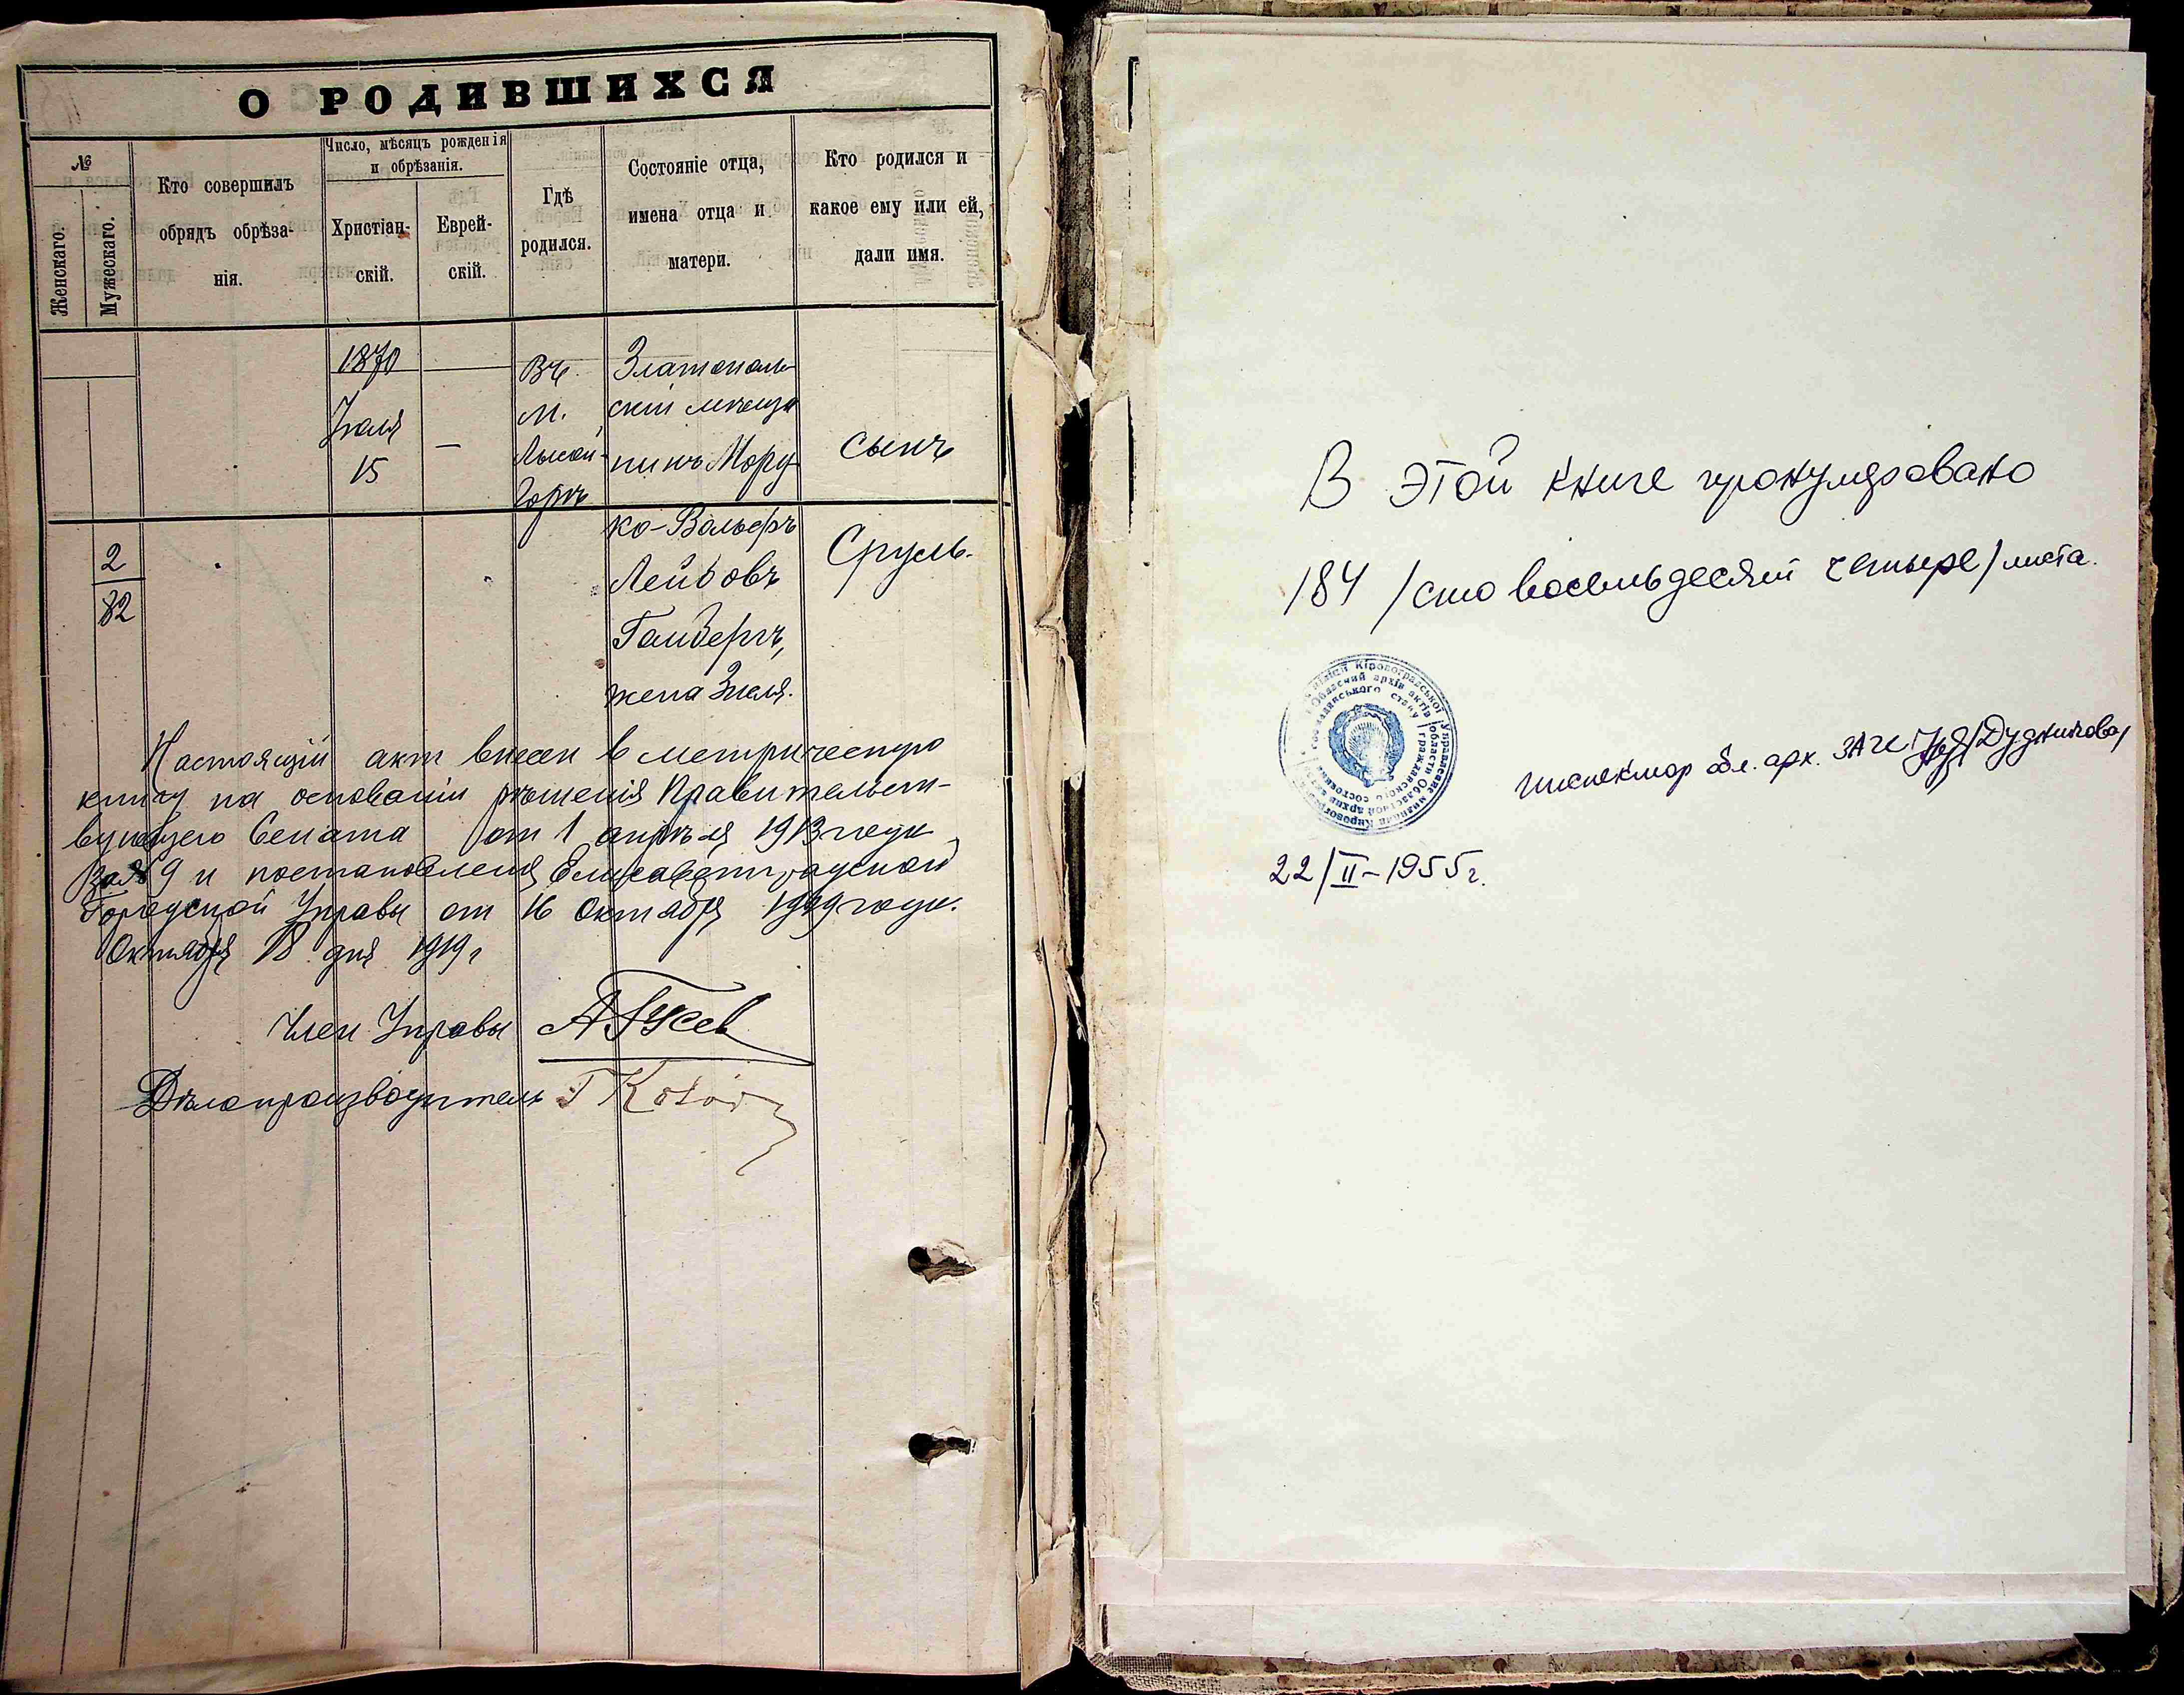 О РОДИВШИХСЯ
№
Женскаго.
Мужескаго.
Кто совершилъ
обрядъ обрѣза-
нія.
Число, мѣсяцъ рожденія
и обрѣзанія.
Христіан-
скій.
Еврей-
скій.
Гдѣ
родился.
Состояніе отца,
имена отца и
матери.
Кто родился и
какое ему или ей,
дали имя.
2
82
1870
Іюля
15
—
Въ
м.
Лысой
Горѣ
Златополь-
скій мѣща
нинъ Мору-
ко-Вольфъ
Лейбовъ
жена
сынъ
Сруль.
Настоящій акт внесен в метрическую
книгу на основаніи рѣшенія Правительст-
вующего Сената от 1 апрѣля 1913 года
за № 9 и постановленія Елисаветградской
Городской Управы от 16 Октября 1919 года.
Октября 18 дня 1919 г
Член Управы А Гусев
Дѣлопроизводитель
В этой книге пронумеровано
184 /сто восемьдесят четыре/ листа.
инспектор обл. арх. ЗАГС /Дудникова/
22/II-1955г.